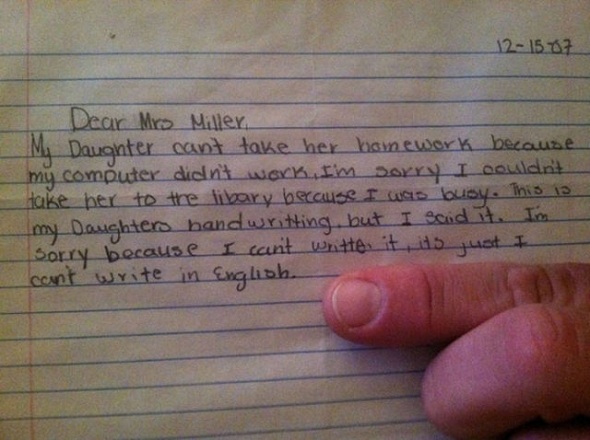 12-15-07
Dear Mrs Miller,
My Daughter can't take her homework because
my computer didn't work, I'm sorry I couldn't
take her to the libary because I was busy. This is
my Daughters handwritting, but I said it. I'm
sorry because I can't writte it, its just I
can't write in English.